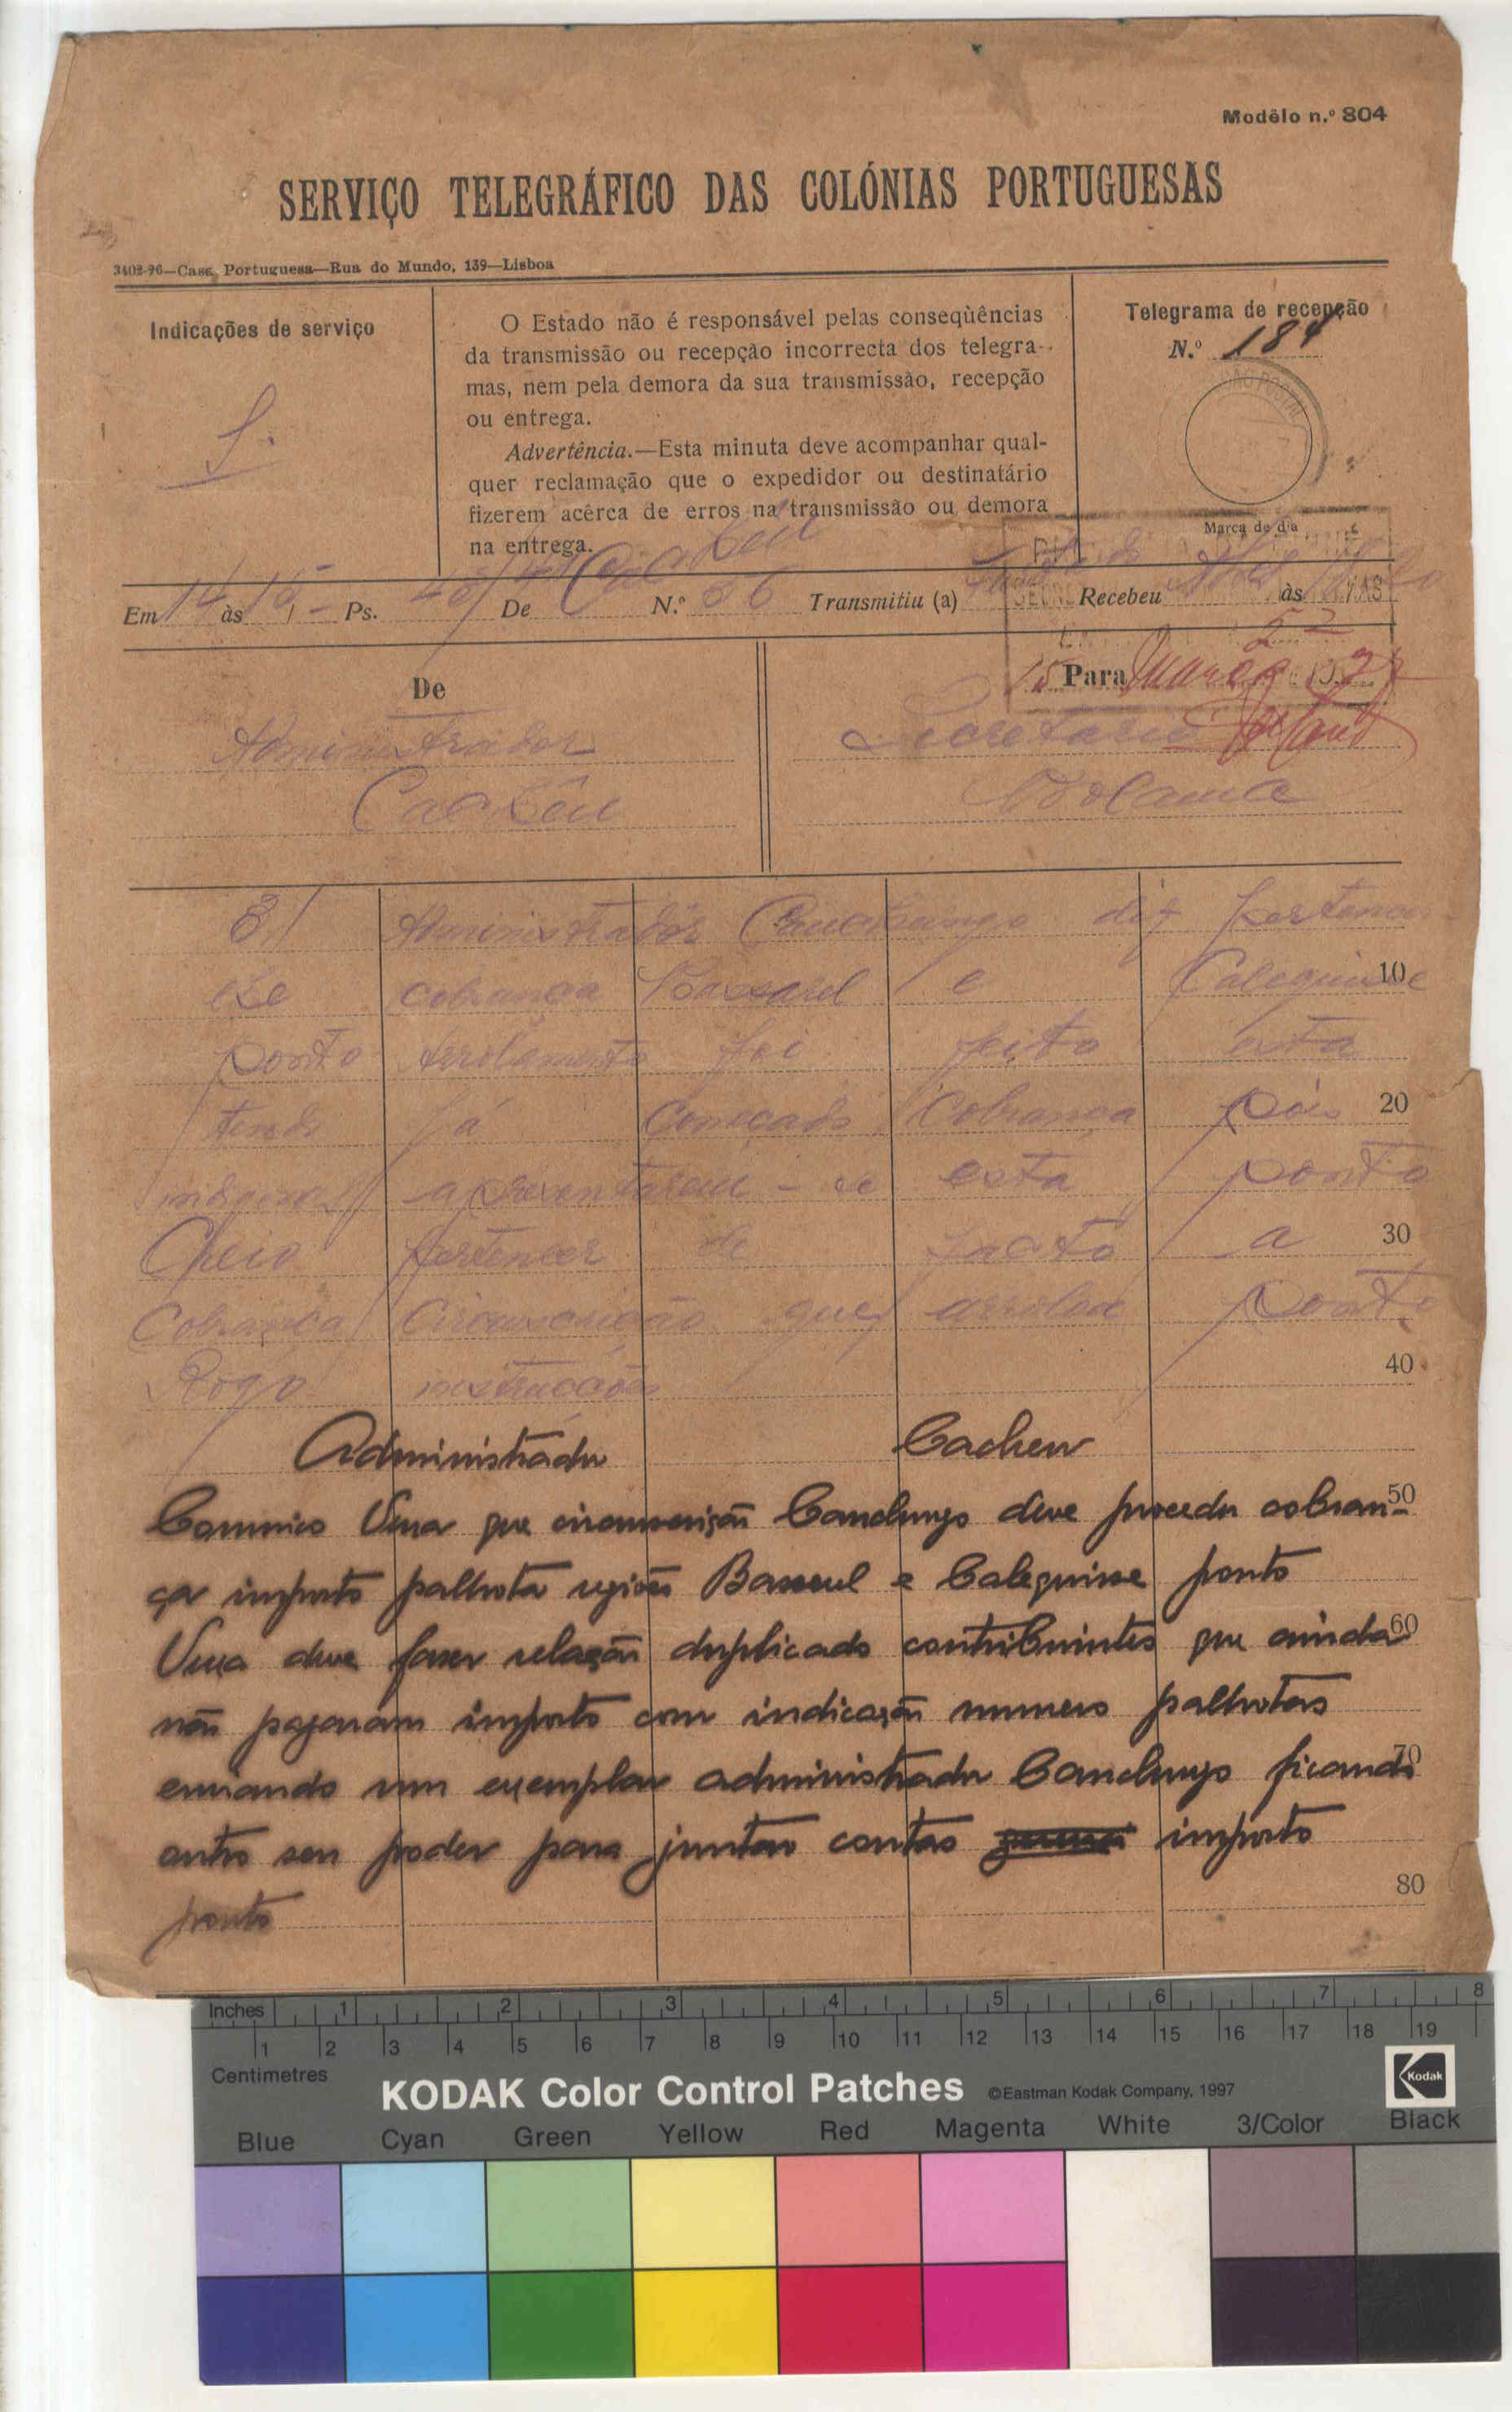 Modêlo n.º 804
SERVIÇO TELEGRÁFICO DAS COLÓNIAS PORTUGUESAS
3402-96—Casa Portuguesa—Rua do Mundo, 139—Lisboa
Indicações de serviço
S.
O Estado não é responsável pelas conseqüências
da transmissão ou recepção incorrecta dos telegra-
mas, nem pela demora da sua transmissão, recepção
ou entrega.
Advertência.—Esta minuta deve acompanhar qual-
quer reclamação que o expedidor ou destinatário
fizerem acêrca de erros na transmissão ou demora
na entrega.
Telegrama de recepção
N.º 184
Marca do dia
Em 14 às 15 Ps. De Cacheu N.º 86 Transmitiu (a) Recebeu às
De
Administrador
Cacheu
15 Para Março
Secretario
Bolama
8/ Administrador Canchungo diz pertencer
lhe cobrança Bassarel e Calequisse
ponto Arrolamento foi feito esta
tendo já começado cobrança pois
indigenas apresentaram-se esta ponto
Creio pertencer de facto a
cobrança circunscrição que arrolou ponto
Rogo instrucções
Administrador Cacheu
Comunico Vexa que circunscrição Canchungo deve proceder cobran-
ça imposto palhota regiões Bassarel e Calequisse ponto
Vexa deve fazer relação duplicado contribuintes que ainda
não pagaram imposto com indicação numero palhotas
enviando um exemplar administrador Canchungo ficando
outro seu poder para juntar contas imposto
ponto
10
20
30
40
50
60
70
80
Inches 1 2 3 4 5 6 7 8
1 2 3 4 5 6 7 8 9 10 11 12 13 14 15 16 17 18 19
Centimetres
KODAK Color Control Patches ©Eastman Kodak Company, 1997
Kodak
Blue Cyan Green Yellow Red Magenta White 3/Color Black